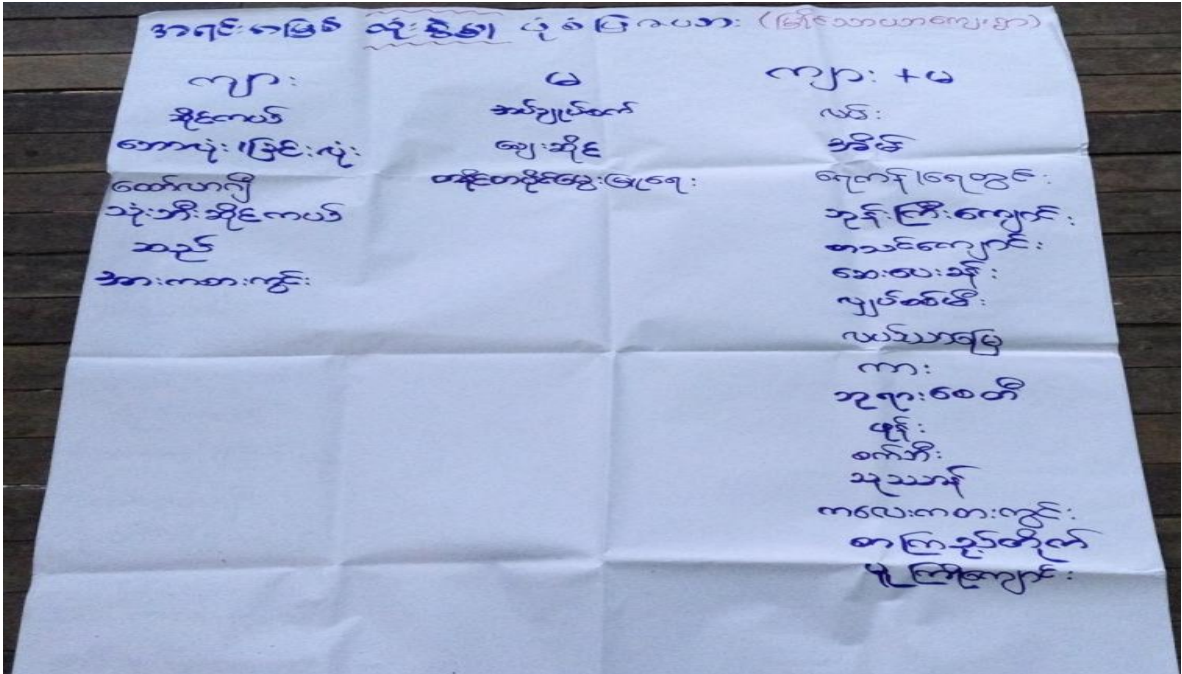 အရင်းအမြစ် သုံးစွဲမှု ပုံစံပြဇယား (မြိုင်သာယာကျေးရွာ)
ကျား
ဆိုင်ကယ်
ဘောလုံး/ခြင်းလုံး
ထော်လာဂျီ
သုံးဘီးဆိုင်ကယ်
ဆည်
အားကစားကွင်း
မ
အပ်ချုပ်စက်
ဈေးဆိုင်
တစ်နိုင်တစ်ပိုင်မွေးမြူရေး
ကျား + မ
လမ်း
အိမ်
ရေကန်/ရေတွင်း
ဘုန်းကြီးကျောင်း
စာသင်ကျောင်း
ဆေးပေးခန်း
လျှပ်စစ်မီး
လယ်ယာမြေ
ကား
ဘုရားစေတီ
ဖုန်း
စက်ဘီး
သုဿာန်
ကလေးကစားကွင်း
စာကြည့်တိုက်
မူကြိုကျောင်း